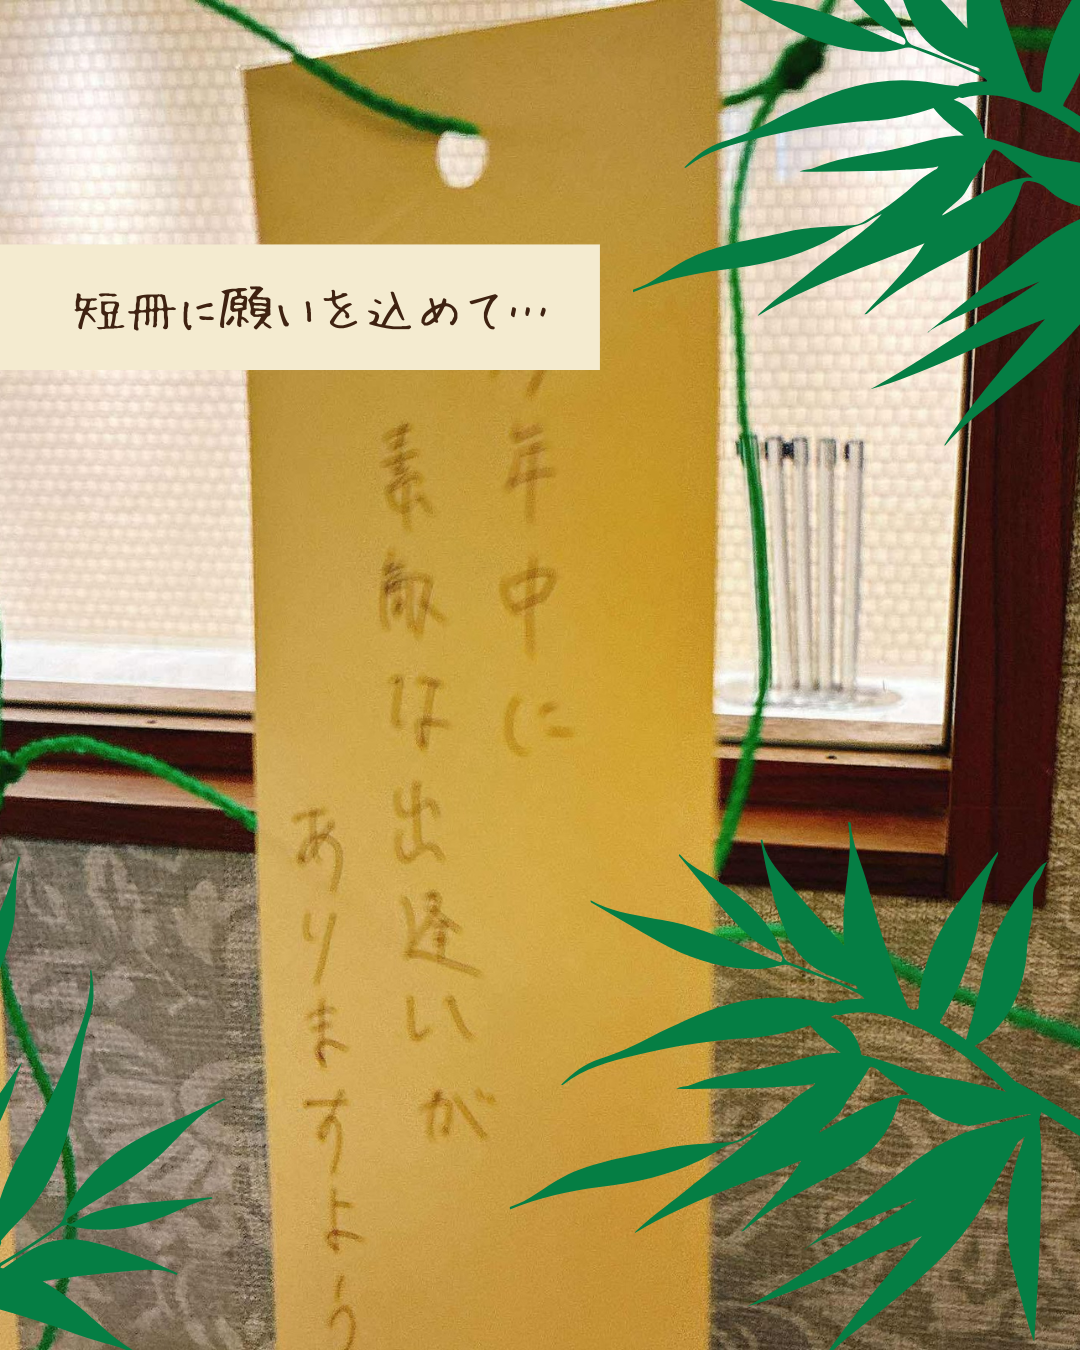 短冊に願いを込めて…
年中に
素敵は出逢いが
ありますよう